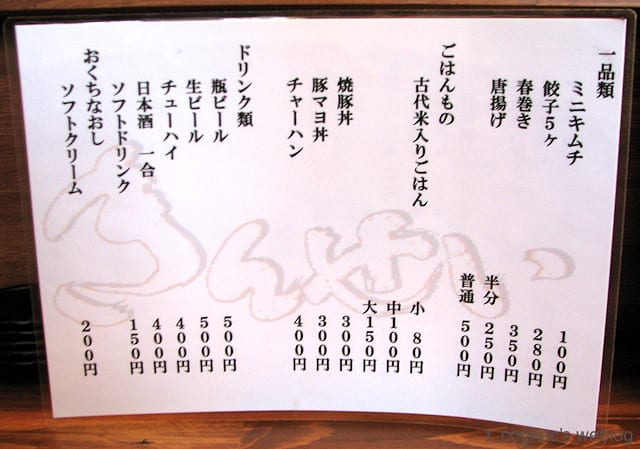 一品類
ミニキムチ 100円
餃子5ヶ 280円
春巻き 350円
唐揚げ 半分 250円
普通 500円
ごはんもの
古代米入りごはん 小 80円
中100円
大150円
焼豚丼 300円
豚マヨ丼 300円
チャーハン 400円
ドリンク類
瓶ビール 500円
生ビール 500円
チューハイ 400円
日本酒 一合 400円
ソフトドリンク 150円
おくちなおし
ソフトクリーム 200円